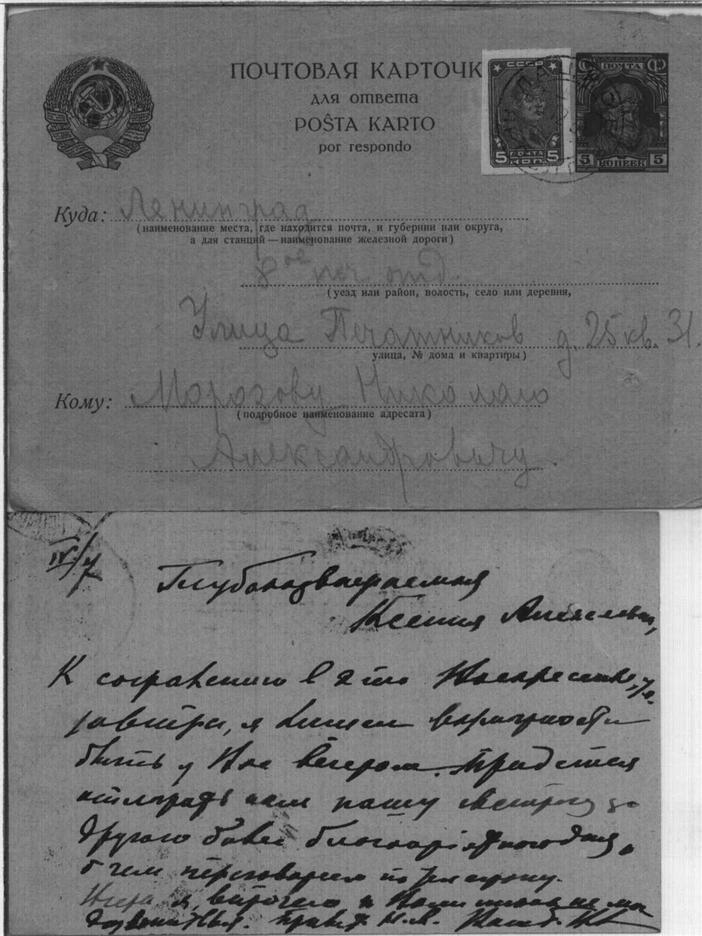 ПОЧТОВАЯ КАРТОЧК
для ответа
POŜTA KARTO
por respondo
СССР
5 ПОЧТА 5
КОП.
ПОЧТА
5 КОПЕЕК 5
Куда: Ленинград
(наименование места, где находится почта, и губернии или округа,
а для станций—наименование железной дороги)
8ое поч. отд.
(уезд или район, волость, село или деревня,
Улица Печатников д. 25 кв. 31.
улица, № дома и квартиры)
Кому: Морозову Николаю
(подробное наименование адресата)
Александровичу.
IV/7
Глубокоуважаемая
Ксения Алексеевна,
К сожалению в это Воскресенье, т.е.
завтра, я лишен возможности
быть у Вас вечером. Придется
отложить нам нашу встречу до
другого более благоприятного дня,
о чем переговорим по телефону.
Вчера я, впрочем, к Вам никак не мог
дозвониться.